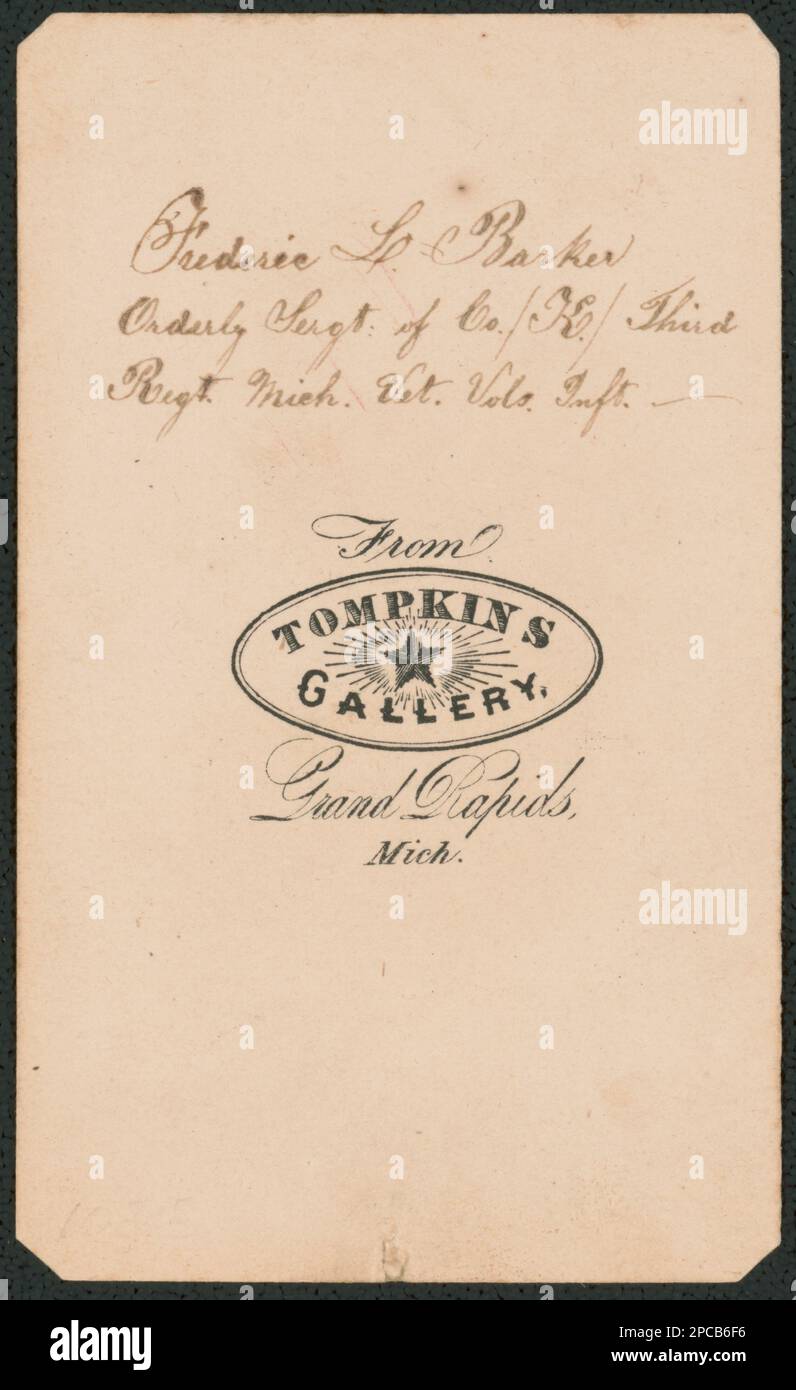 Frederic L. Barker
Orderly Sergt. of Co. /K./ Third
Regt. Mich. Vet. Vols. Inft. —
From
TOMPKINS
GALLERY,
Grand Rapids,
Mich.
alamy
alamy
a
alamy
Image ID: 2PCB6F6
www.alamy.com